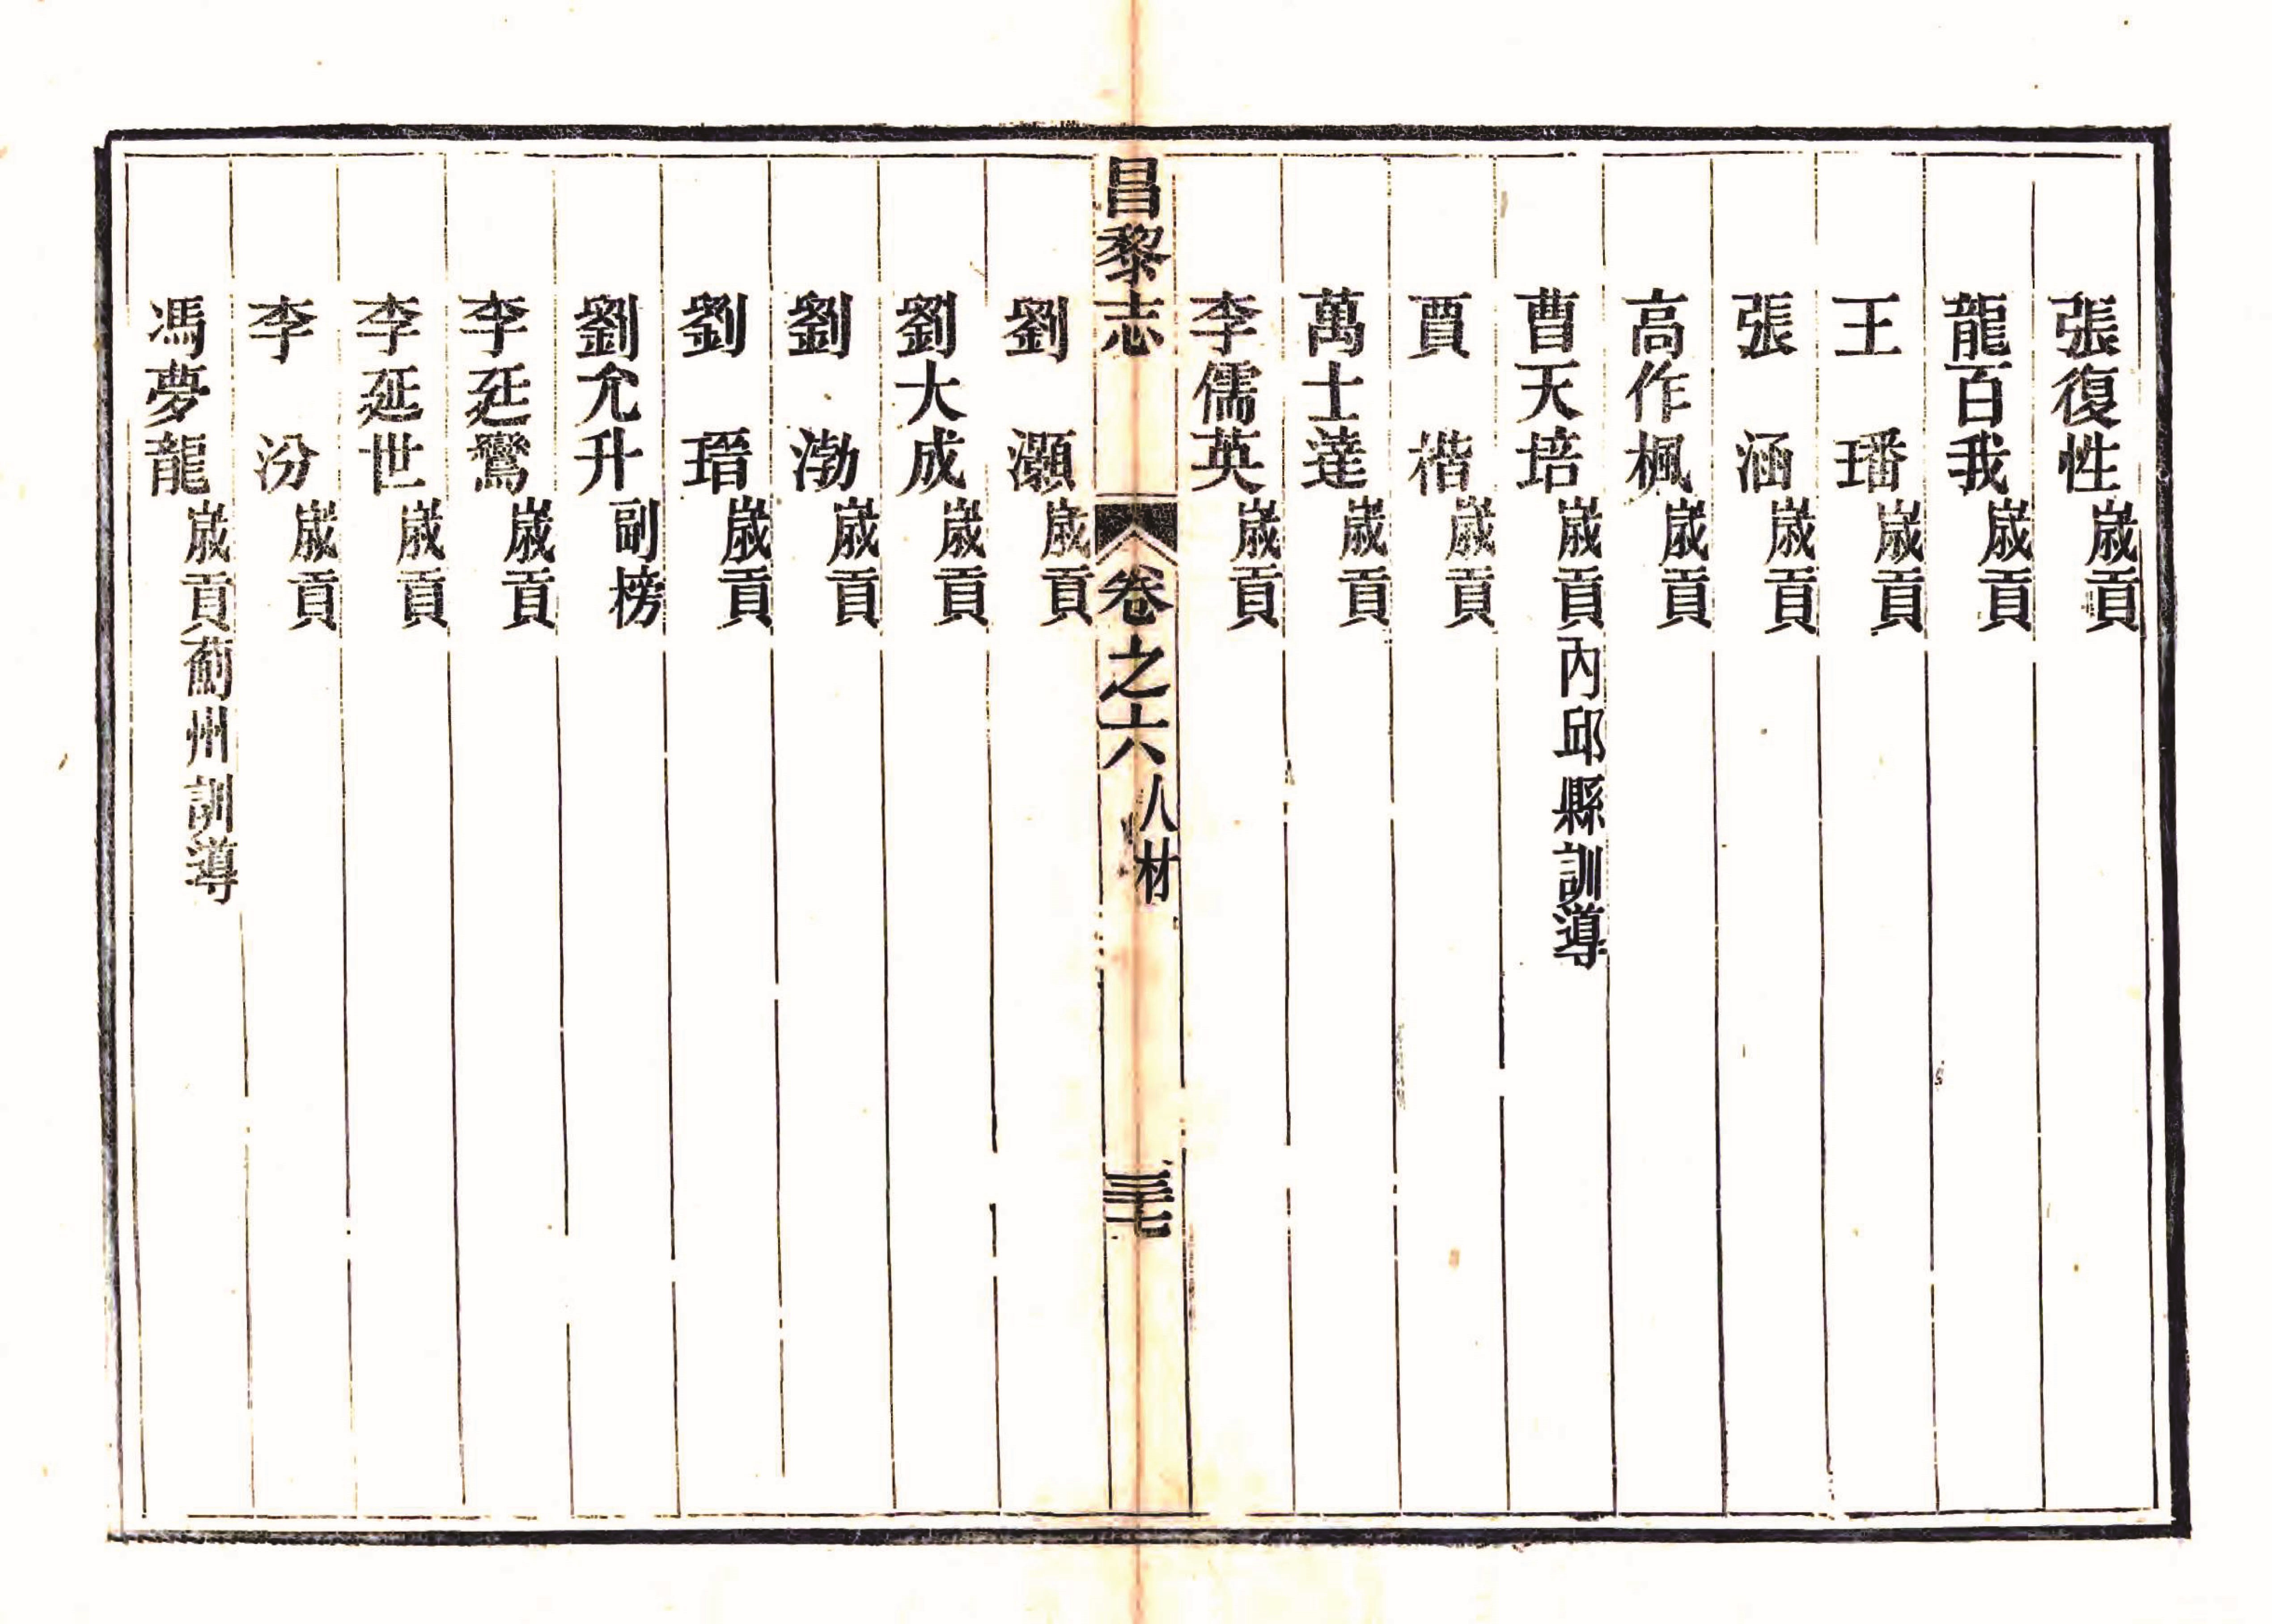 張復性歲貢
龍百我歲貢
王璠歲貢
張涵歲貢
高作楓歲貢
曹天培歲貢內邱縣訓導
賈楷歲貢
萬士達歲貢
李儒英歲貢
昌黎志 卷之六 人材 三十七
劉灝歲貢
劉大成歲貢
劉渤歲貢
劉瑨歲貢
劉允升副榜
李延鸞歲貢
李延世歲貢
李汾歲貢
馮夢龍歲貢薊州訓導